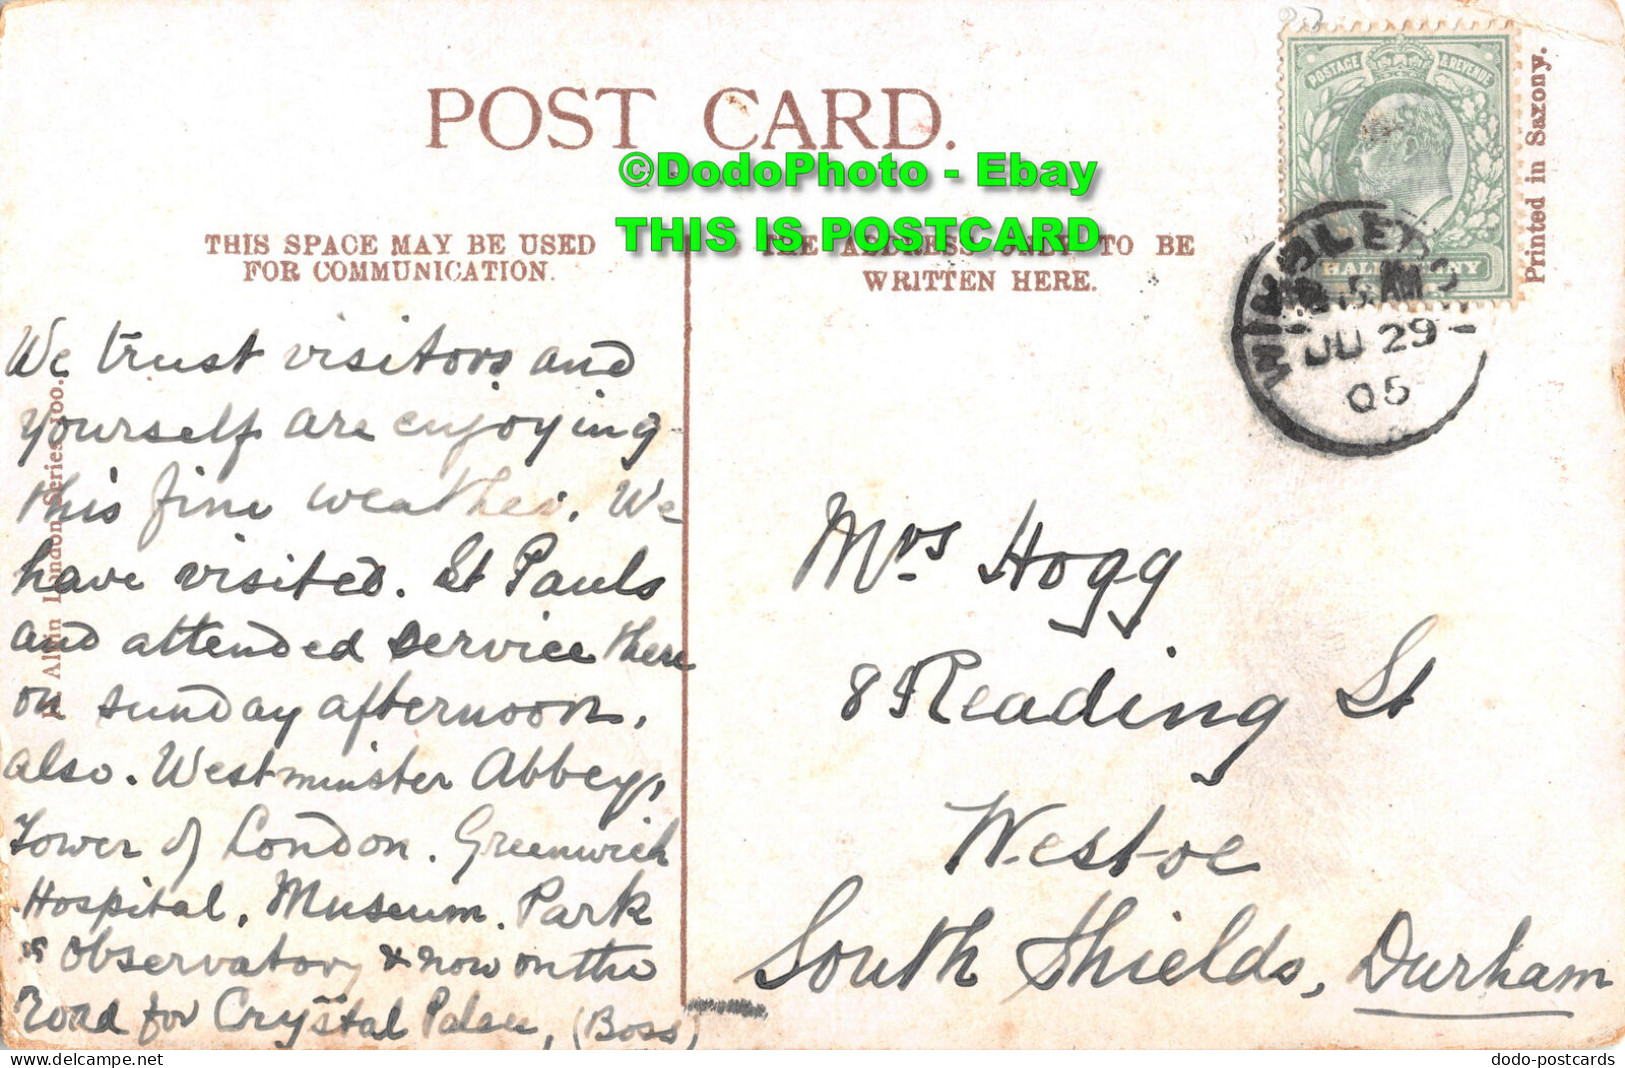 POST CARD.
©DodoPhoto - Ebay
THIS IS POSTCARD
THIS SPACE MAY BE USED
FOR COMMUNICATION.
THE ADDRESS ONLY TO BE
WRITTEN HERE.
POSTAGE & REVENUE
HALFPENNY
Printed in Saxony.
AM
JU 29
05
London Series 100.
We trust visitors and
yourself are enjoying
this fine weather. We
have visited. St Pauls
and attended service there
on sunday afternoon,
also. Westminster Abbey,
Tower of London. Greenwich
Hospital, Museum. Park
& Observatory & now on the
Road for Crystal Palace, (Boss)
Mrs Hogg
8 Reading St
Westoe
South Shields, Durham
dodo-postcards